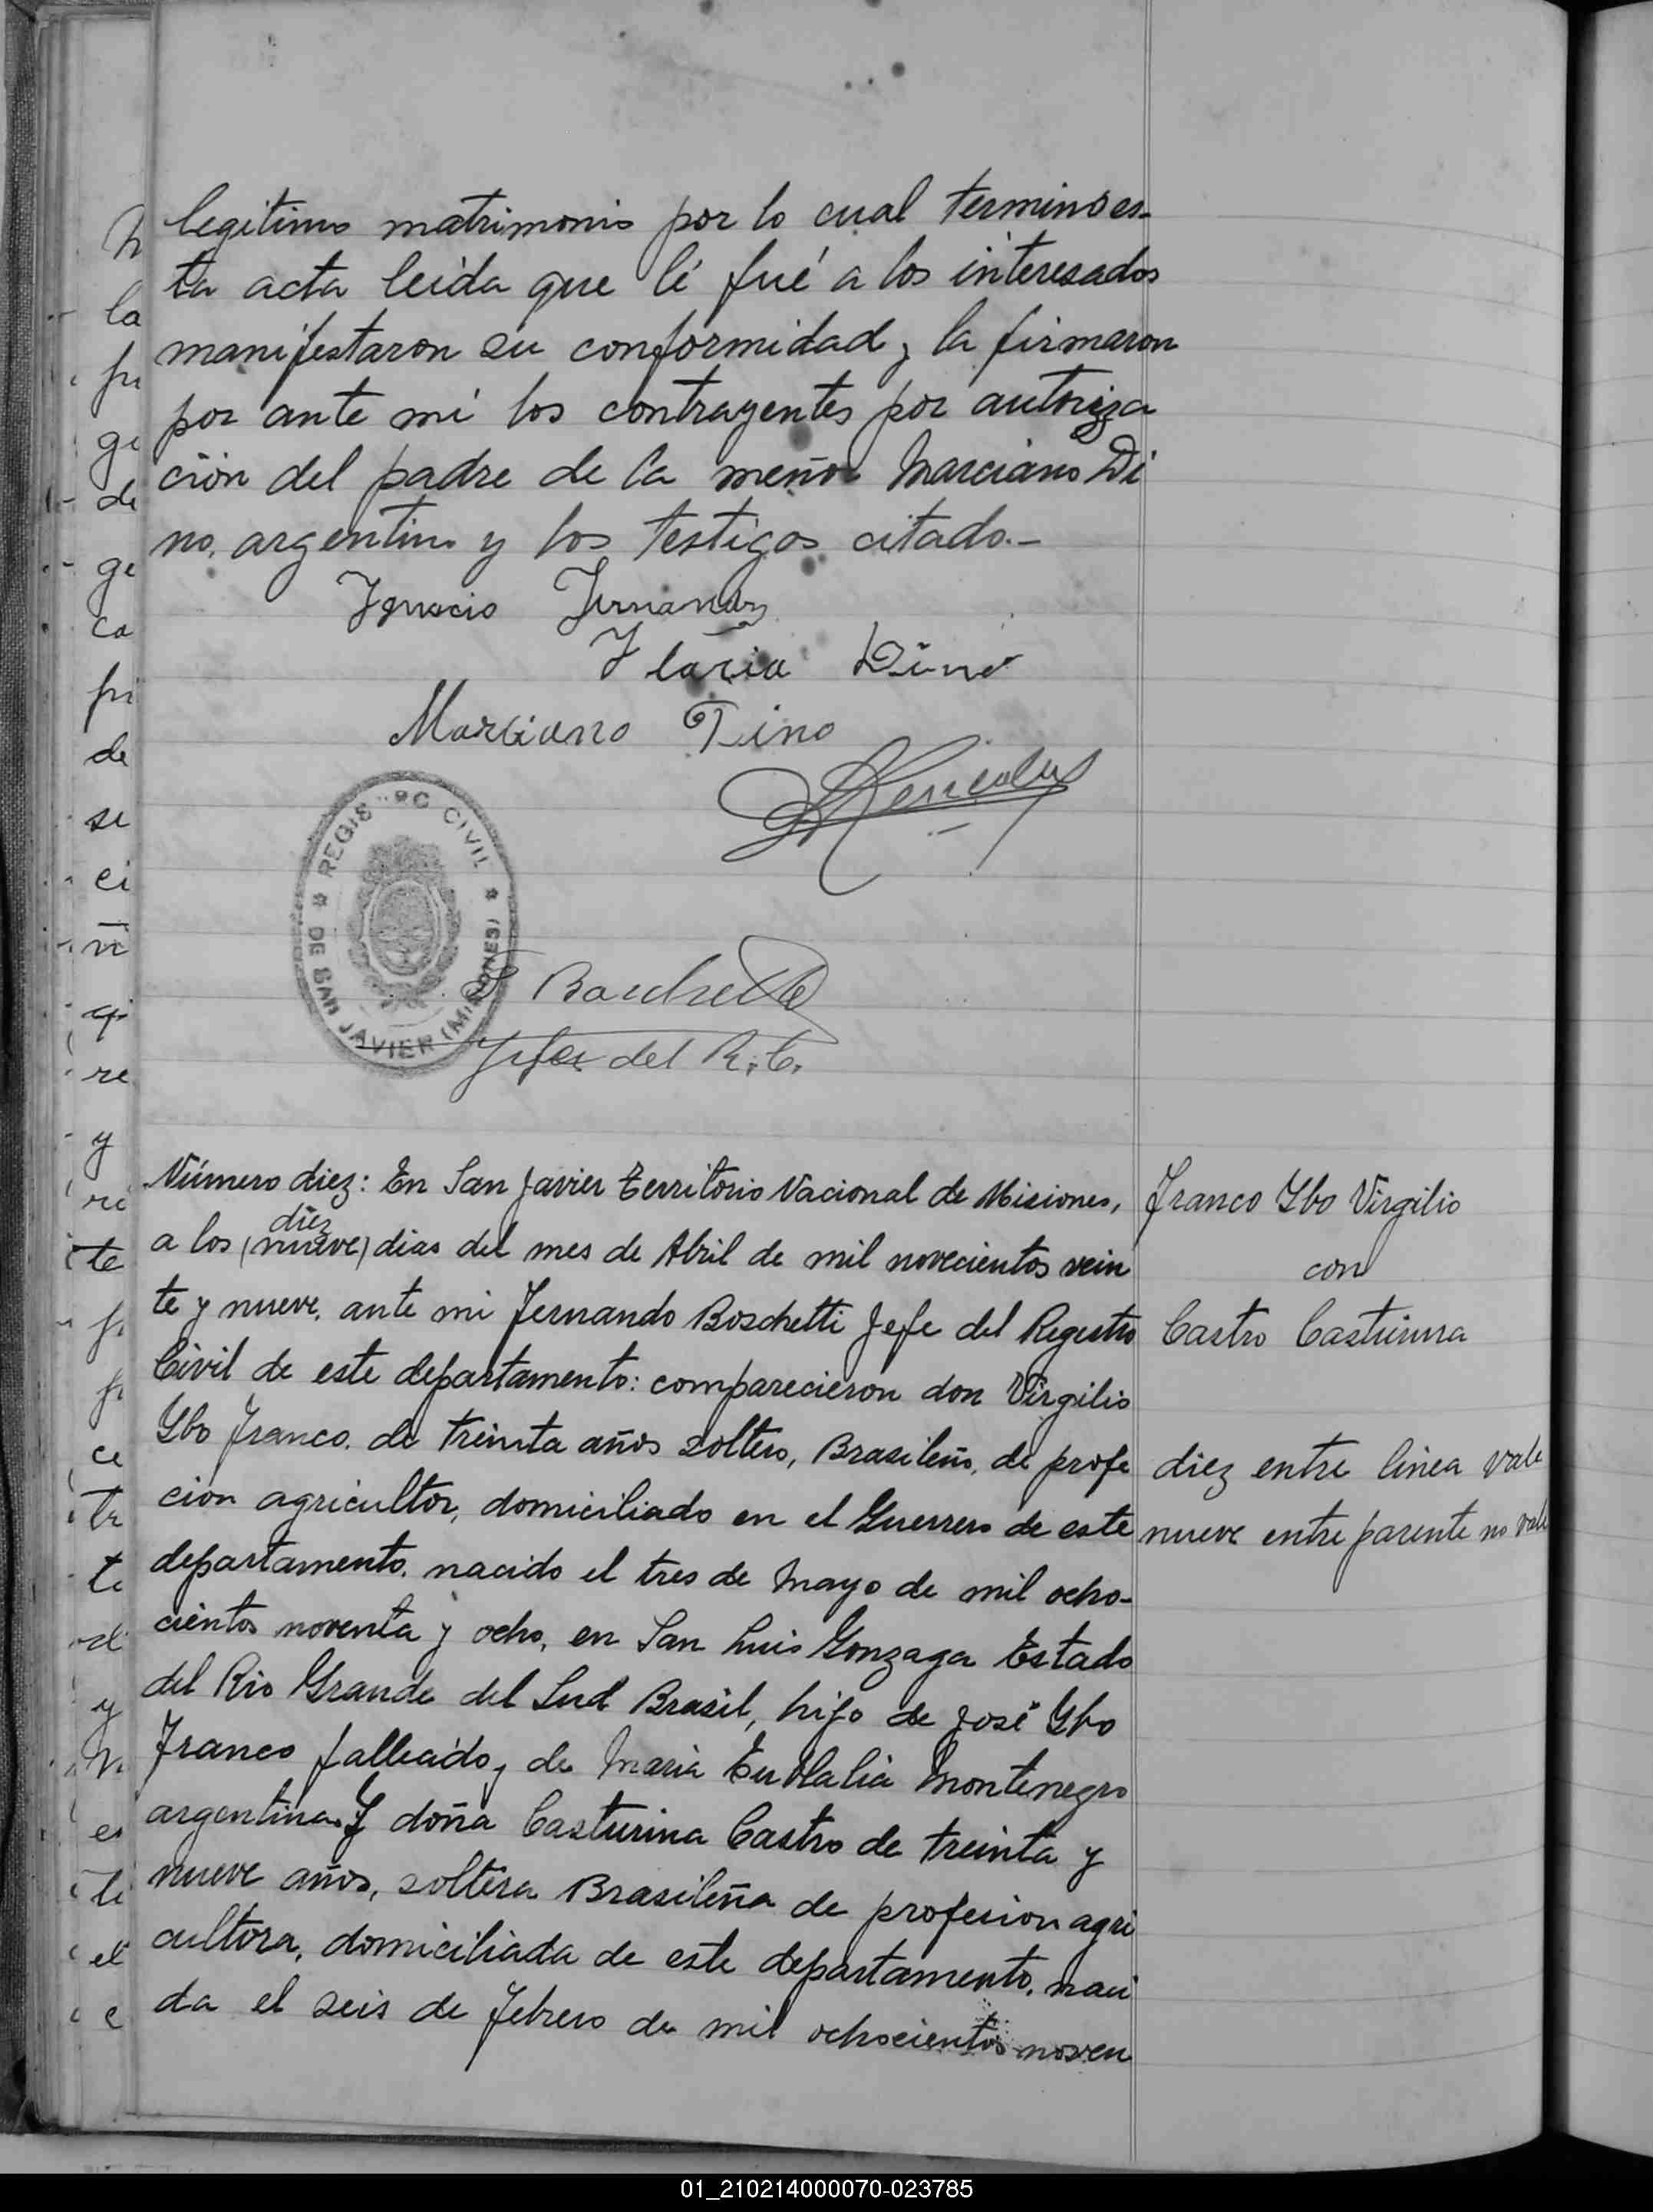 legitimo matrimonio por lo cual termino es-
ta acta leida que lé fué a los interesados
manifestaron su conformidad y la firmaron
por ante mi los contrayentes por autoriza
ción del padre de la menor Marciano Di
no, argentino y los testigos citado.-
Ignacio
Ilaria Dino
Marciano Dino
REGISTRO CIVIL
DE SAN JAVIER (MISIONES)
Jefe del R.C.
Número diez: En San Javier Territorio Nacional de Misiones,
diez
a los (nueve) dias del mes de Abril de mil novecientos vein
te y nueve, ante mi Fernando Boschetti Jefe del Registro
Civil de este departamento: comparecieron don Virgilio
Ybo Franco, de treinta años soltero, Brasileño, de profe
cion agricultor, domiciliado en el Guerrero de este
departamento, nacido el tres de Mayo de mil ocho-
cientos noventa y ocho, en San Luis Gonzaga Estado
del Rio Grande del Sud Brasil, hijo de José Ybo
Franco fallecido y de Maria Eulalia Montenegro
argentina. Y doña Casturina Castro de treinta y
nueve años, soltera Brasileña de profesion agri
cultora, domiciliada de este departamento, naci
da el seis de Febrero de mil ochocientos noven
Franco Ybo Virgilio
con
Castro Casturina
diez entre linea vale
nueve entre parente no vale
01_210214000070-023785